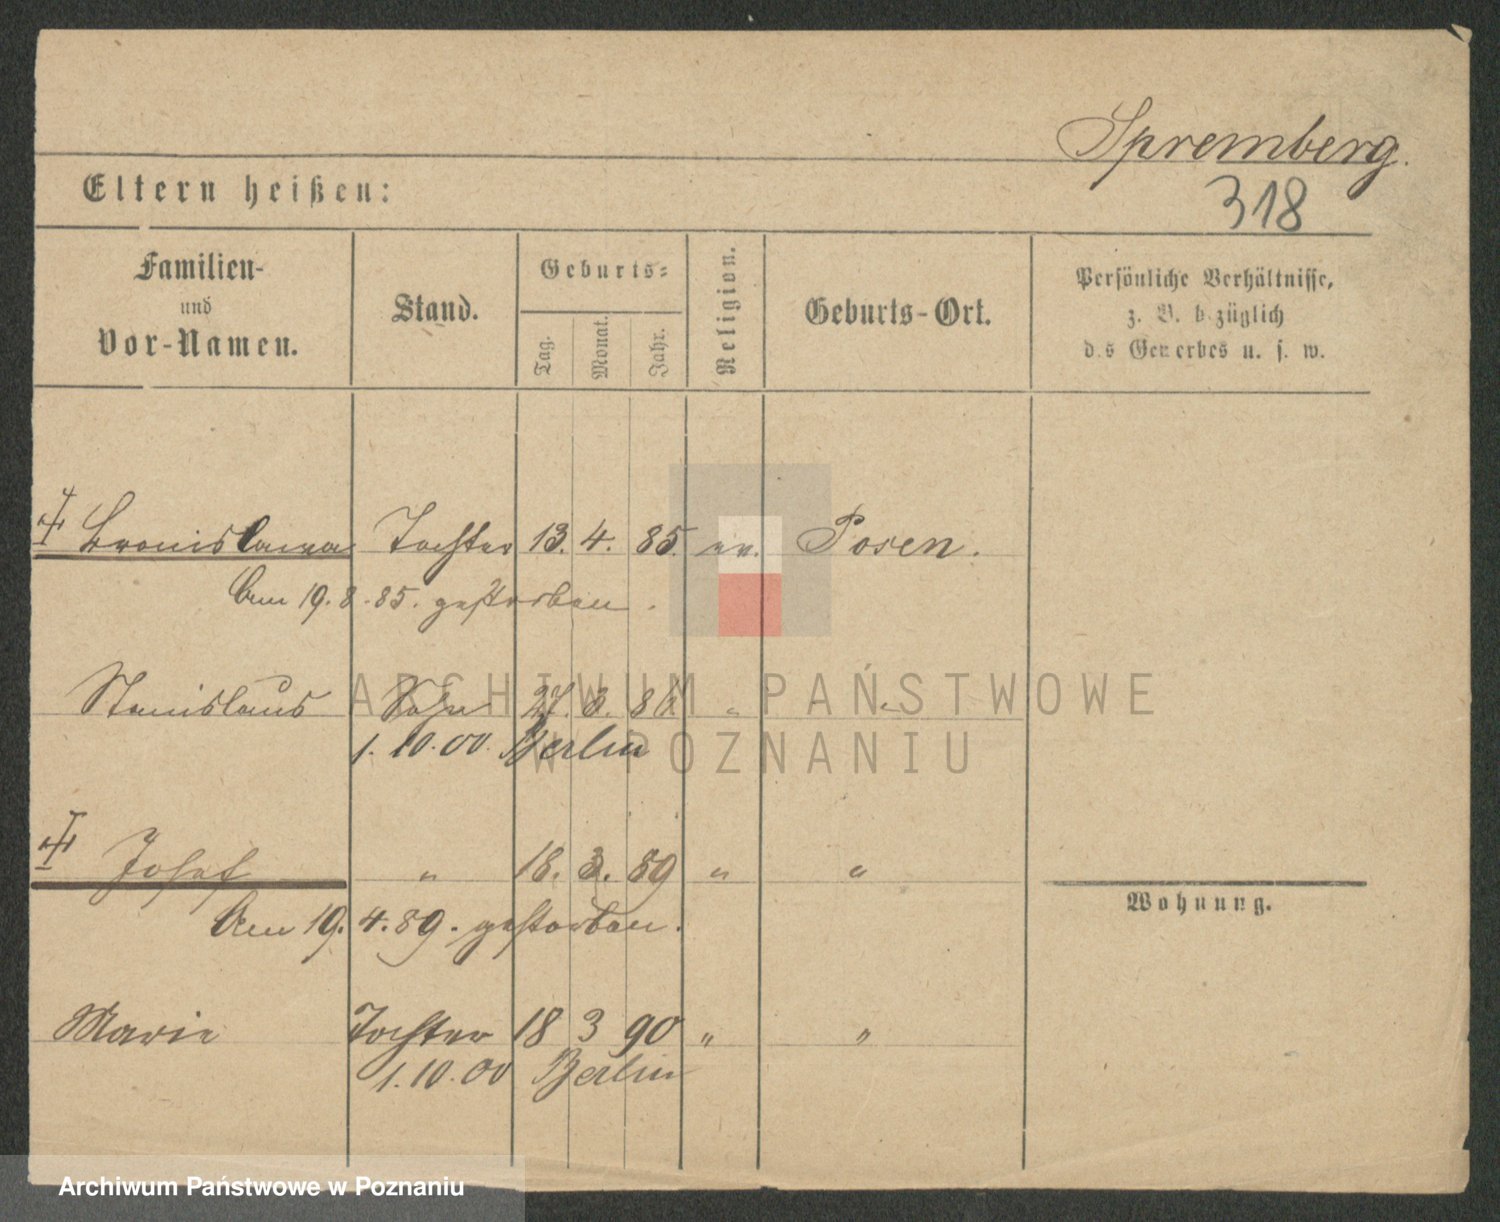 Spremberg.
Eltern heißen:
318
Familien-
und
Vor-Namen.
Stand.
Geburts-
Tag.
Monat.
Jahr.
Religion.
Geburts-Ort.
Persönliche Verhältnisse,
z. B. bezüglich
des Gewerbes u. s. w.
Bronislawa Tochter 13. 4. 85. ev. Posen.
Am 19. 8. 85. gestorben.
Stanislaus Sohn 27. 3. 86 " "
1. 10. 00. Berlin
Josef " 18. 3. 89 " "
Am 19. 4. 89. gestorben.
Wohnung.
Marie Tochter 18 3 90 " "
1. 10. 00 Berlin
ARCHIWUM PAŃSTWOWE
W POZNANIU
Archiwum Państwowe w Poznaniu